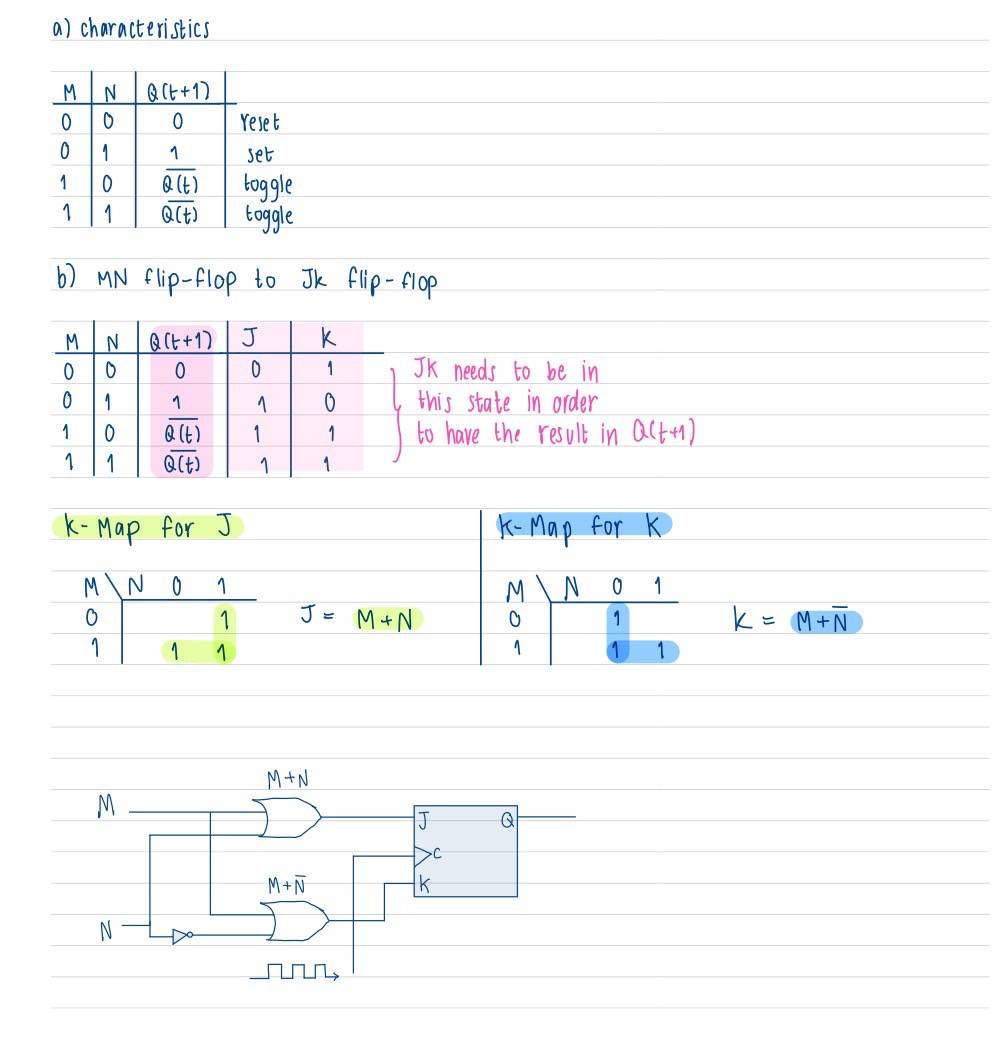 a) characteristics
M N Q(t+1)
0 0 0 reset
0 1 1 set
1 0 Q̅(̅t̅)̅ toggle
1 1 Q̅(̅t̅)̅ toggle
b) MN flip-flop to Jk flip-flop
M N Q(t+1) J K
0 0 0 0 1
0 1 1 1 0
1 0 Q̅(̅t̅)̅ 1 1
1 1 Q̅(̅t̅)̅ 1 1
JK needs to be in
this state in order
to have the result in Q(t+1)
k-Map for J
M \ N 0 1
0 1
1 1 1
J = M+N
k-Map for K
M \ N 0 1
0 1
1 1 1
k = M+N̅
M+N
M
J Q
C
M+N̅
K
N